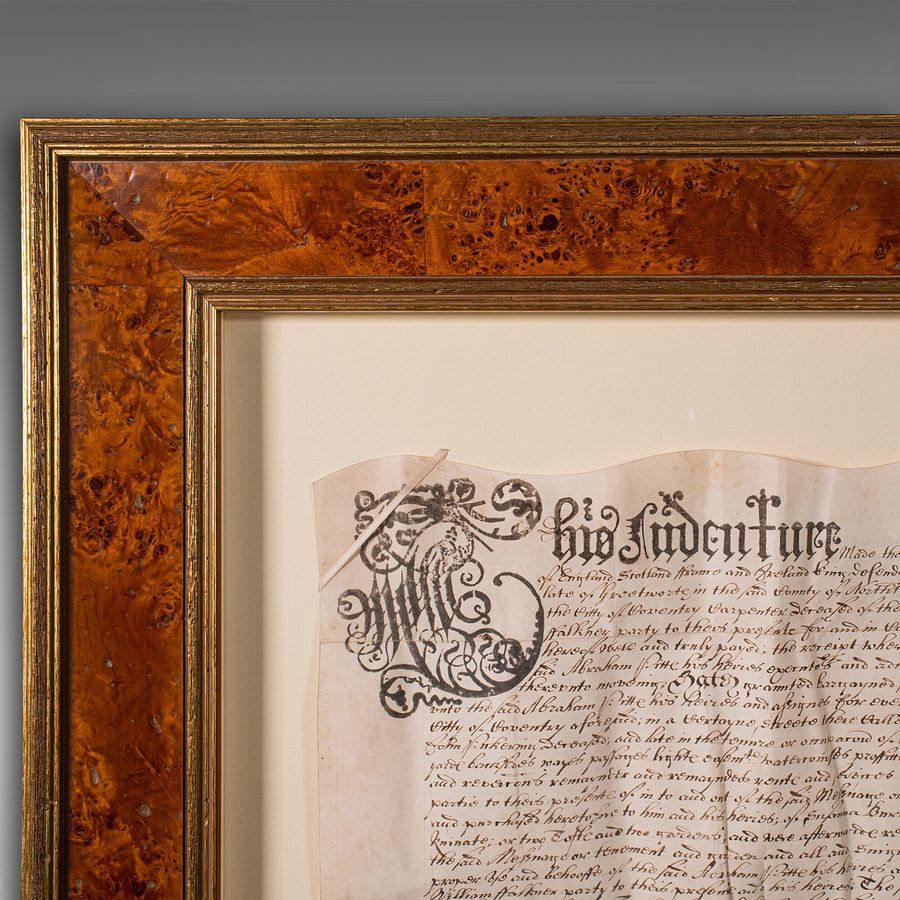 This Indenture Made the
of England Scotland ffrance and Ireland King defend
late of in the said County of North
the Citty of Coventry Carpenter deceased of the
ffalkner party to theis presents for and in
hereof well and truly payed, the receipt wher
said Abraham his heires executors and adm
thereunto moveing, Hath granted bargayned
unto the said Abraham his heires and assignes for ever
Citty of Coventry aforesaid, in a certayne streete there Call
John deceased, and late in the tenure or occupacion of
yard backsides wayes passages lights easemts watercourses proffitt
and revercons remaynder and remaynders rents and services
partie to theis presents of in to and out of the said Messuage or
and purchased heretofore to him and his heires, of
or two Tofts and two gardens, and were afterwards
the said Messuage or tenement and garden and all and
proper use and behoofe of the said Abraham his heires
William ffalkner party to theis presents and his heires The